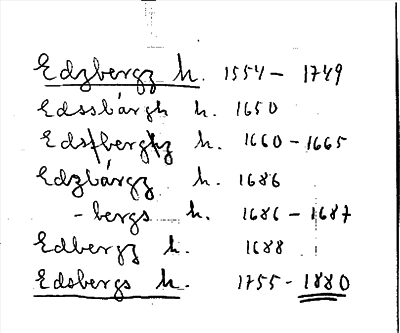 Edzbergz h. 1554 – 1749
Edssbárgh h. 1650
Edsfberghz h. 1660 – 1665
Edzbárgz h. 1686
– bergs h. 1686 – 1687
Edbergz h. 1688
Edsbergs h. 1755 – 1880